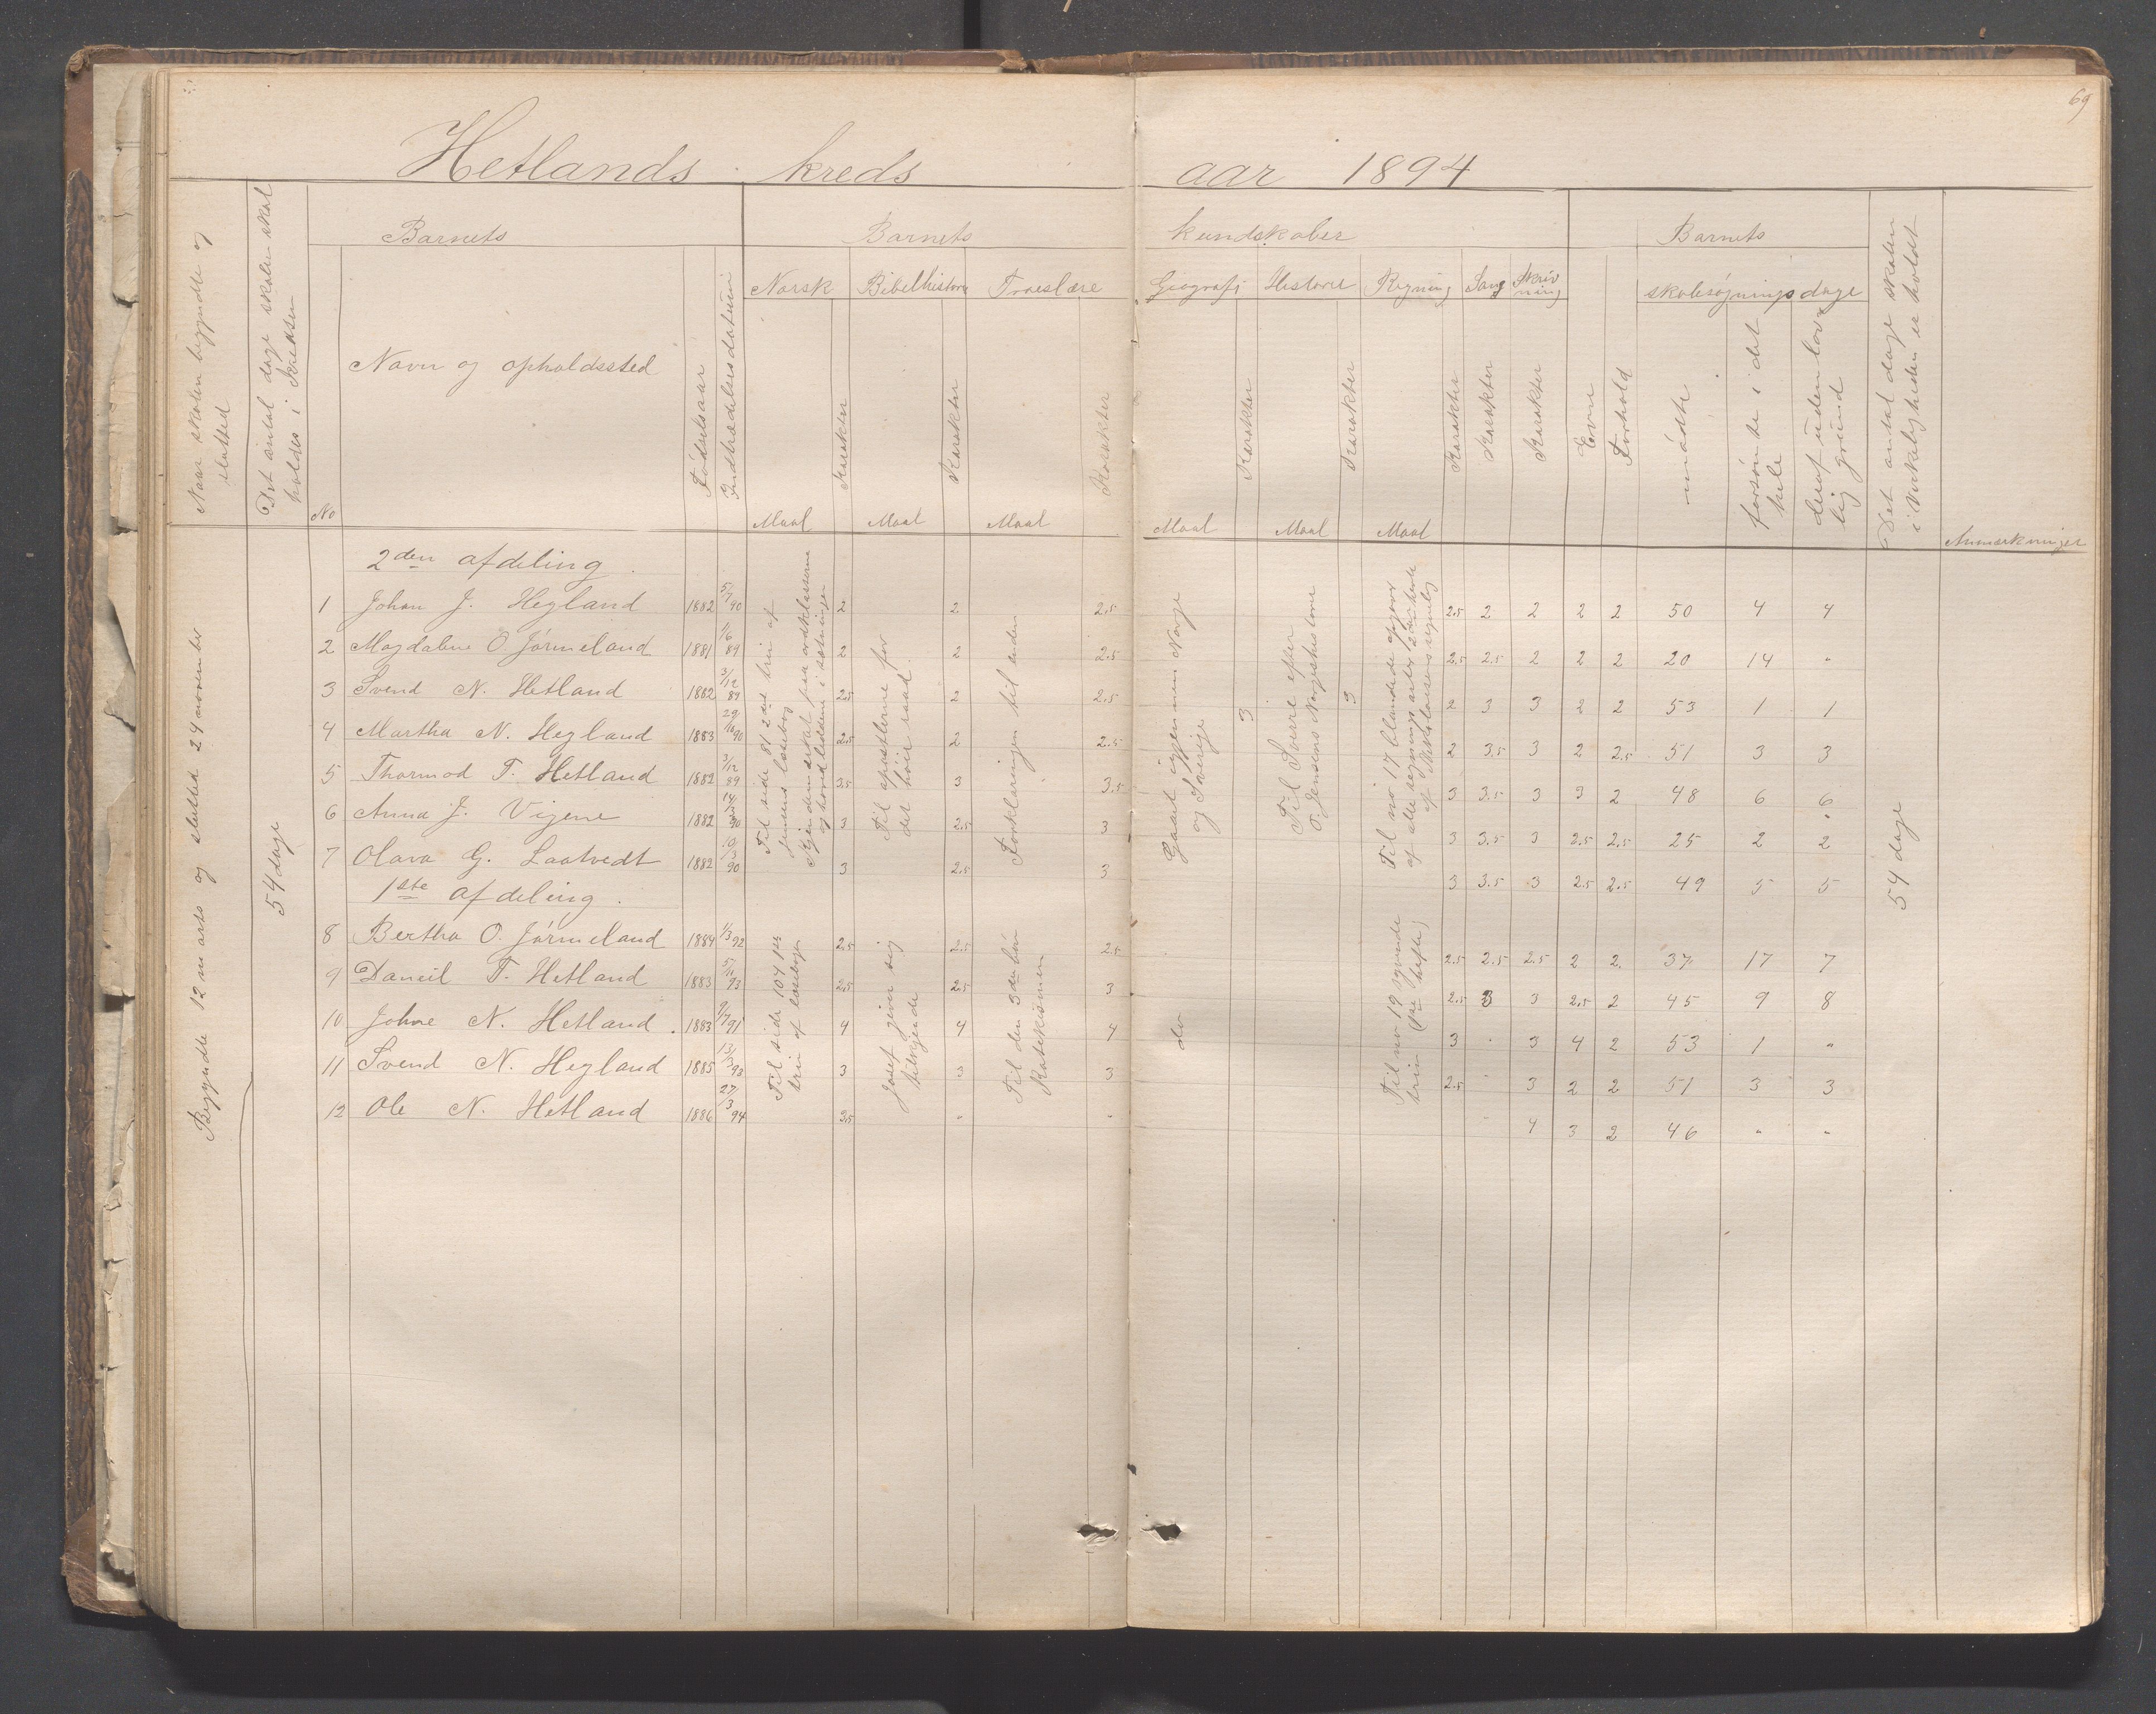 69
Hetlands kreds aar 1894
Naar skolen begyndte og slutted
Det antal dage skolen skal holdes i Kredsen
Barnets
Barnets
kundskaber
Barnets
No
Navn og opholdssted
Fødselsaar
Indtrædelsesdatum
Norsk
Bibelhistorie
Troeslære
Geografi
Historie
Regning
Sang
Skriv
ning
skolesøgningsdage
Maal
Karakter
Maal
Karakter
Maal
Karakter
Maal
Karakter
Maal
Karakter
Maal
Karakter
Karakter
Karakter
Evne
Forhold
mødte
forsømte i det hele
deraf uden lov-
lig grund
Det antal dage skolen
i Virkeligheden er holdt
Anmærkninger
Begyndte 12 marts og slutted 24 november
54 dage
2den afdeling.
1 Johan J. Hegland 1882 5/7 90 2 2 2.5 2.5 2 2 2 2 50 4 4
2 Magdalene O. Jørmeland 1881 1/6 89 2 2 2.5 2.5 2.5 2 2 2 20 14 "
3 Svend N. Hetland 1882 3/12 89 2.5 2 2.5 3 3 2 3 3 2 2 53 1 1
4 Martha N. Hegland 1883 29/10 90 2.5 2 2.5 2 3.5 3 2 2.5 51 3 3
5 Thormod T. Hetland 1882 3/12 89 3.5 3 3.5 3 3.5 3 3 2 48 6 6
6 Anna J. Vigene 1882 14/3 90 3 2.5 3 3 3.5 3 2.5 2.5 25 2 2
7 Olava G. Laatvedt 1882 10/3 90 3 2.5 3 3 3.5 3 2.5 2.5 49 5 5
Til side 81 2det trin af
Jensens læsebog
Kjendemærket paa ordklasserne
og hovedleddene i sætninger
Til apostlerne for
det høie raad.
Forklaringen til enden
Gaaet igjennem Norge
og Sverige
Til Sverre efter
O. Jensens Norgeshistorie
Til no 17 blandede opgaver
af alle regningsarter 2det hefte
af Nicolaisens regnebog
54 dage
1ste afdeling.
8 Bertha O. Jørmeland 1884 1/3 92 2.5 2.5 2.5 2.5 2.5 2.5 2 2. 37 17 7
9 Daneil T. Hetland 1883 5/11 93 2.5 2.5 3 2.5 3 3 2.5 2 45 9 8
10 Johne N. Hetland. 1883 9/7 91 4 4 4 3 " 3 4 2 53 1 "
11 Svend N. Hegland 1885 13/3 93 3 3 3 2.5 " 3 2 2 51 3 3
12 Ole N. Hetland 1886 27/3 94 3.5 " " " 4 3 2 46 " "
Til side 104 1ste
trin af læsebogen
Josef giver sig
tilkjende
Til den 3die bøn
Katekismen
do
Til no 19 syvende
trin (1ste hefte)